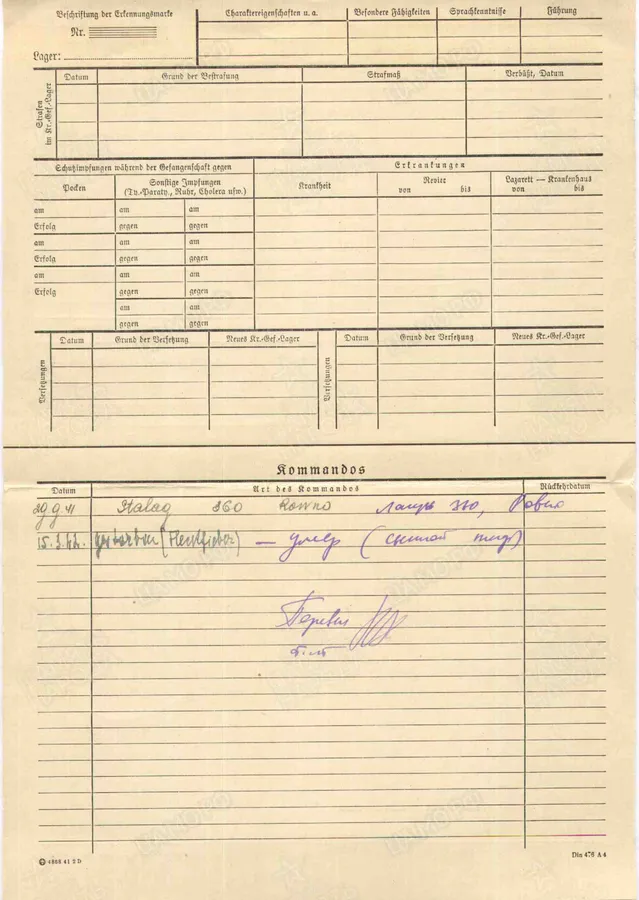 Beschriftung der Erkennungsmarke
Nr.
Lager:
Charaktereigenschaften u. a.
Besondere Fähigkeiten
Sprachkenntnisse
Führung
Strafen im Kr.-Gef.-Lager
Datum
Grund der Bestrafung
Strafmaß
Verbüßt, Datum
Schutzimpfungen während der Gefangenschaft gegen
Erkrankungen
Pocken
Sonstige Impfungen
(Ty.-Paraty., Ruhr, Cholera usw.)
Krankheit
Revier
von bis
Lazarett — Krankenhaus
von bis
am am am
Erfolg gegen gegen
am am am
Erfolg gegen gegen
am am am
Erfolg gegen gegen
am am
gegen gegen
Versetzungen
Datum
Grund der Versetzung
Neues Kr.-Gef.-Lager
Versetzungen
Datum
Grund der Versetzung
Neues Kr.-Gef.-Lager
Kommandos
Datum
Art des Kommandos
Rückkehrdatum
29.9.41 Stalag 360 Rowno лагерь 360, Ровно
15.3.42. gestorben (Fleckfieber) — умер (сыпной тиф)
4868 41 2 D
Din 476 A 4